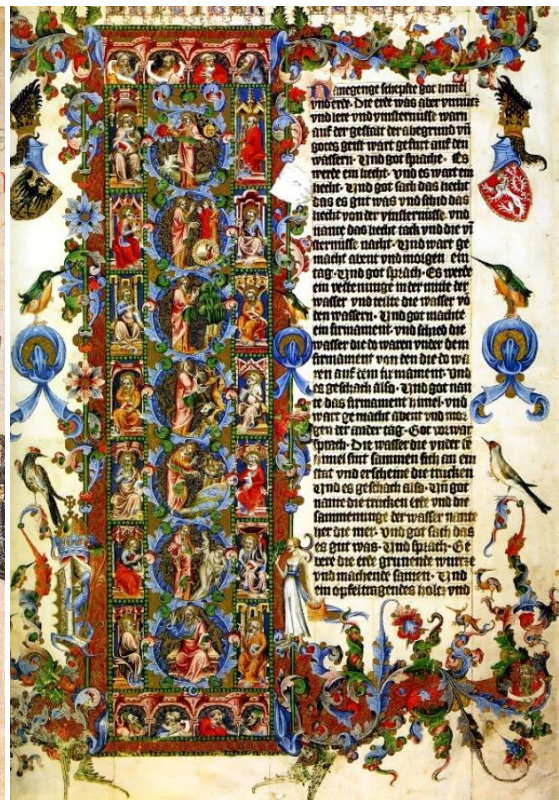 Nanegenge schepfte got himel
vnd erde· Die erde was aber vnnutz
vnd lere vnd vinsternusse warn
auf der gestalt der abegrund vn̄
gotes geist wart gefurt auf den
wassern· Vnd got sprache· Es
werde ein liecht· vnd es wart ein
liecht· Vnd got sach das liecht
das es gut was vnd schid das
liecht von der vinsternusse· vnd
nante das liecht tack vnd die vī
sternusse nacht· Vnd wart ge
macht abent vnd morgen ein
tag· Vnd got sprach· Es werde
ein vestenunge in der mitte der
wasser vnd teilte die wasser vō
den wassern· Vnd got machte
ein firmament· vnd schied die
wasser die do waren vnder dem
firmament von den die do wa
ren auf dem firmament· Vnd
es geschach also· Vnd got nan
te das firmament himel· vnd
wart ge macht abent vnd mor
gen der ander tag· Got vorwar
sprach· Die wasser die vnder dē
himel sint sammen sich an ein
stat vnd erscheine die trucken
Vnd es geschach also· Vn̄ got
nante die trucken erde vnd die
sammenunge der wasser nante
her die mer· vnd got sach das
es gut was· Vnd sprach· Ge
bere die erde grunende wurcze
vnd machende samen· Vnd
ein opfeltragendes holtz vnd